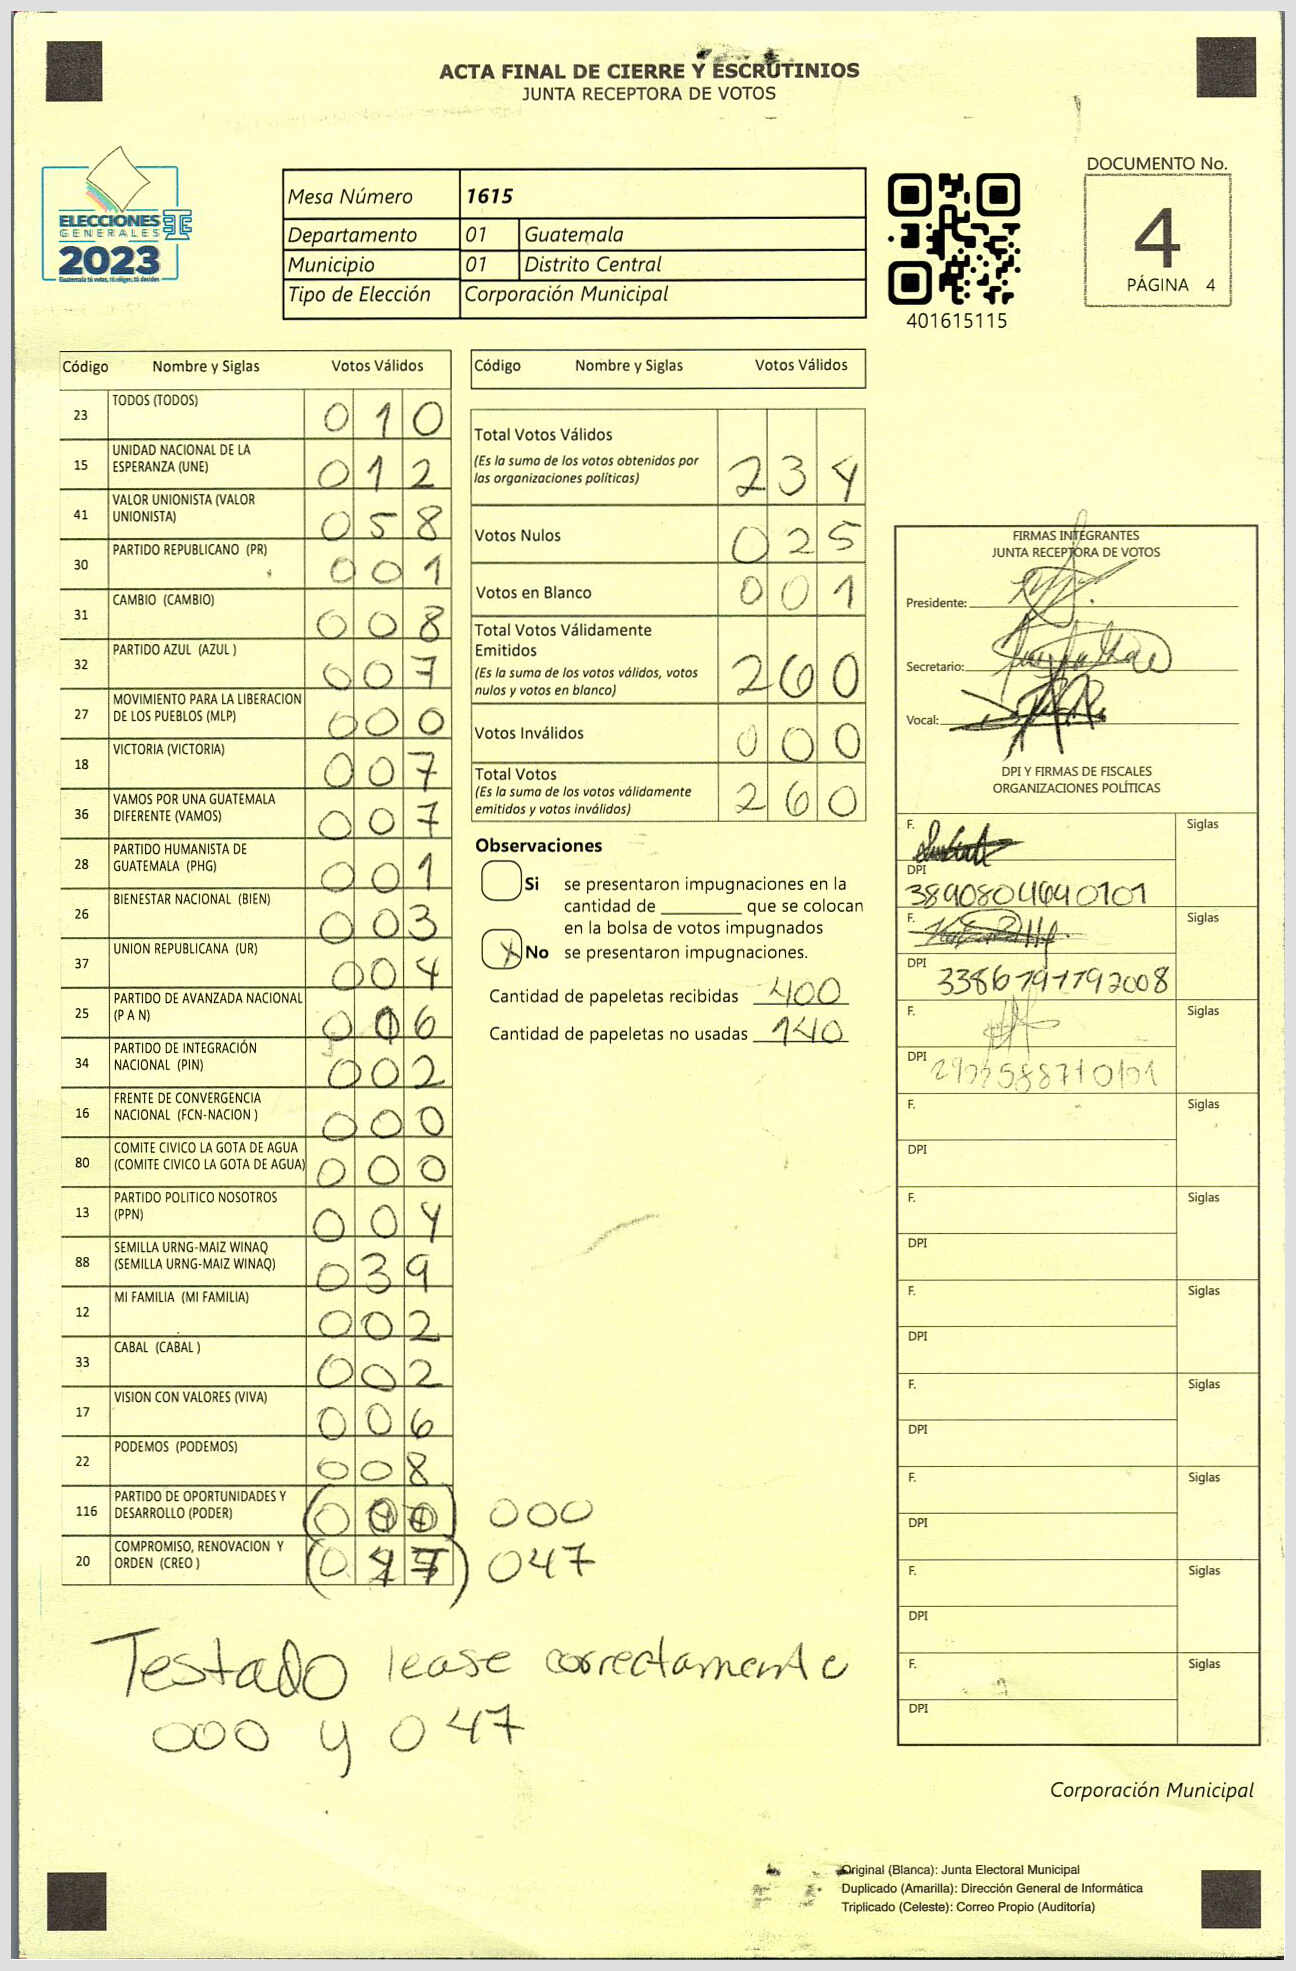 ACTA FINAL DE CIERRE Y ESCRUTINIOS
JUNTA RECEPTORA DE VOTOS
ELECCIONES
GENERALES
2023
Mesa Número 1615
Departamento 01 Guatemala
Municipio 01 Distrito Central
Tipo de Elección Corporación Municipal
401615115
DOCUMENTO No.
4
PÁGINA 4
Código Nombre y Siglas Votos Válidos
23 TODOS (TODOS) 010
15 UNIDAD NACIONAL DE LA ESPERANZA (UNE) 012
41 VALOR UNIONISTA (VALOR UNIONISTA) 058
30 PARTIDO REPUBLICANO (PR) 001
31 CAMBIO (CAMBIO) 008
32 PARTIDO AZUL (AZUL ) 007
27 MOVIMIENTO PARA LA LIBERACION DE LOS PUEBLOS (MLP) 000
18 VICTORIA (VICTORIA) 007
36 VAMOS POR UNA GUATEMALA DIFERENTE (VAMOS) 007
28 PARTIDO HUMANISTA DE GUATEMALA (PHG) 001
26 BIENESTAR NACIONAL (BIEN) 003
37 UNION REPUBLICANA (UR) 004
25 PARTIDO DE AVANZADA NACIONAL (P A N) 006
34 PARTIDO DE INTEGRACIÓN NACIONAL (PIN) 002
16 FRENTE DE CONVERGENCIA NACIONAL (FCN-NACION ) 000
80 COMITE CIVICO LA GOTA DE AGUA (COMITE CIVICO LA GOTA DE AGUA) 000
13 PARTIDO POLITICO NOSOTROS (PPN) 004
88 SEMILLA URNG-MAIZ WINAQ (SEMILLA URNG-MAIZ WINAQ) 039
12 MI FAMILIA (MI FAMILIA) 002
33 CABAL (CABAL ) 002
17 VISION CON VALORES (VIVA) 006
22 PODEMOS (PODEMOS) 008
116 PARTIDO DE OPORTUNIDADES Y DESARROLLO (PODER) 000
20 COMPROMISO, RENOVACION Y ORDEN (CREO ) 047
Testado lease correctamente
000 y 047
Código Nombre y Siglas Votos Válidos
Total Votos Válidos 234
(Es la suma de los votos obtenidos por
las organizaciones políticas)
Votos Nulos 025
Votos en Blanco 001
Total Votos Válidamente
Emitidos 260
(Es la suma de los votos válidos, votos
nulos y votos en blanco)
Votos Inválidos 000
Total Votos 260
(Es la suma de los votos válidamente
emitidos y votos inválidos)
Observaciones
Si se presentaron impugnaciones en la
cantidad de ________ que se colocan
en la bolsa de votos impugnados
X No se presentaron impugnaciones.
Cantidad de papeletas recibidas 400
Cantidad de papeletas no usadas 140
FIRMAS INTEGRANTES
JUNTA RECEPTORA DE VOTOS
Presidente:
Secretario:
Vocal:
DPI Y FIRMAS DE FISCALES
ORGANIZACIONES POLÍTICAS
F. Siglas
DPI
F. Siglas
DPI
F. Siglas
DPI
F. Siglas
DPI
F. Siglas
DPI
F. Siglas
DPI
F. Siglas
DPI
F. Siglas
DPI
F. Siglas
DPI
F. Siglas
DPI
Corporación Municipal
Original (Blanca): Junta Electoral Municipal
Duplicado (Amarilla): Dirección General de Informática
Triplicado (Celeste): Correo Propio (Auditoría)